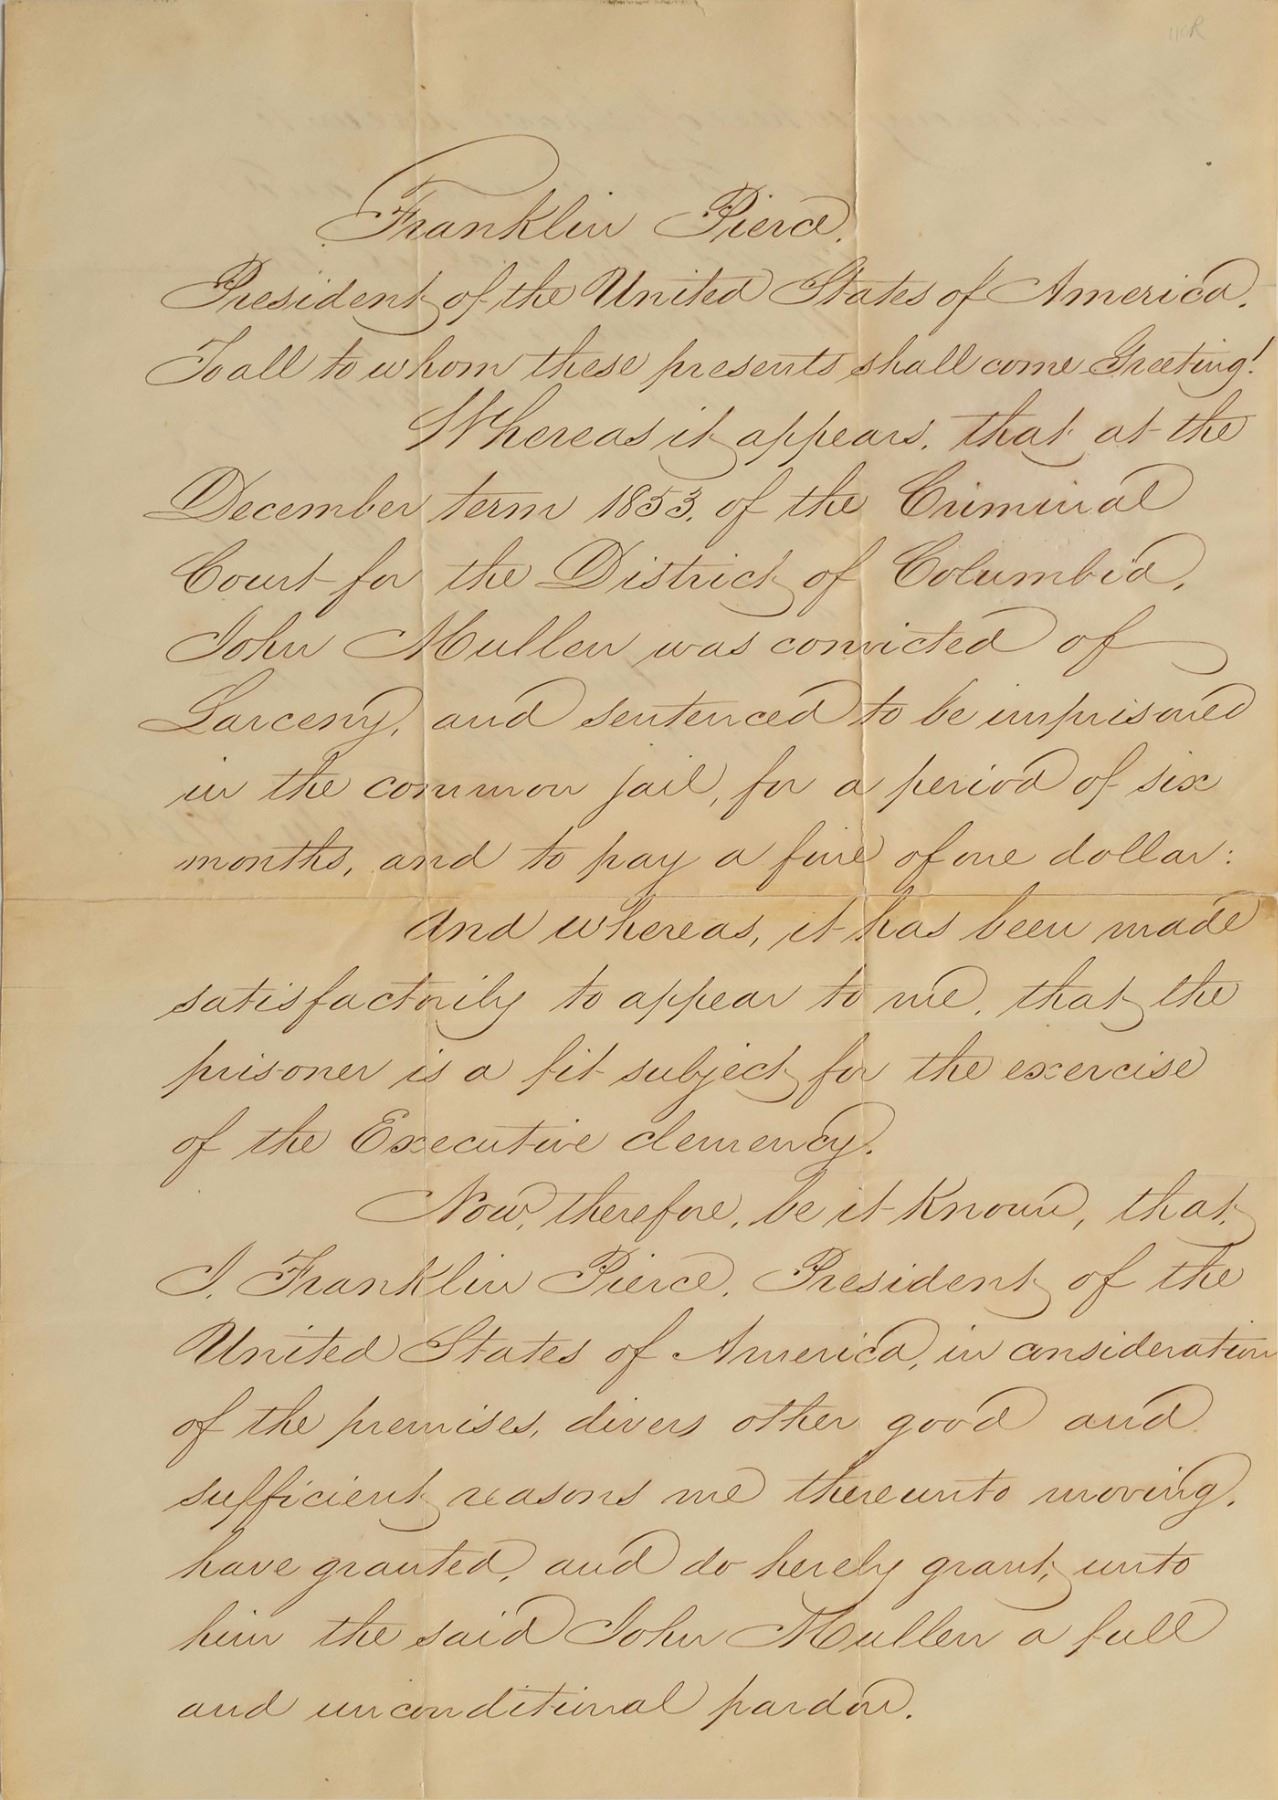 Franklin Pierce,
President of the United States of America,
To all to whom these presents shall come Greeting!
Whereas it appears, that at the
December term 1853, of the Criminal
Court for the District of Columbia,
John Mullen was convicted of
Larceny, and sentenced to be imprisoned
in the common jail, for a period of six
months, and to pay a fine of one dollar:
And whereas, it has been made
satisfactorily to appear to me, that the
prisoner is a fit subject for the exercise
of the Executive clemency.
Now, therefore, be it Known, that,
I, Franklin Pierce, President of the
United States of America, in consideration
of the premises, divers other good and
sufficient reasons me thereunto moving,
have granted, and do hereby grant, unto
him the said John Mullen a full
and unconditional pardon.